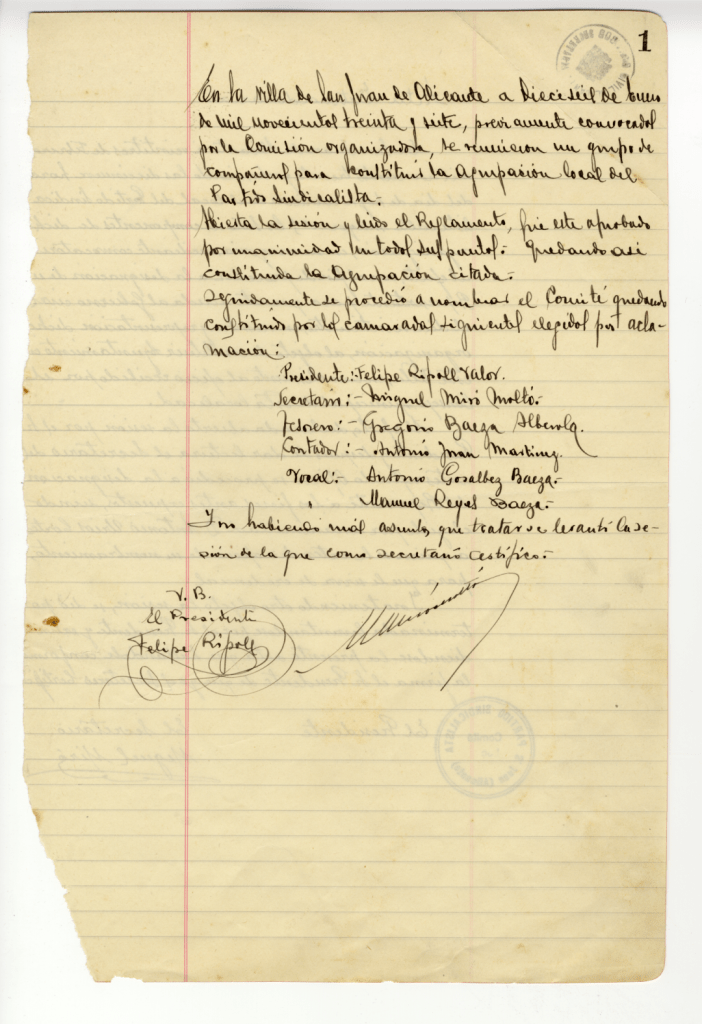 1
En la villa de San Juan de Alicante a Dieciseis de Enero
de mil novecientos treinta y siete, previamente convocados
por la Comisión organizadora, se reunieron un grupo de
compañeros para constituir la Agrupación local del
Partido Sindicalista.
Abierta la sesión y leido el Reglamento, fue este aprobado
por unanimidad en todos sus puntos.- Quedando asi
constituida la Agrupación citada.-
Seguidamente se procedió a nombrar el Comité quedando
constituido por los camaradas siguientes elegidos por acla-
mación:
Presidente:- Felipe Ripoll Valor.
Secretario:- Miguel Miró Moltó.-
Tesorero:- Gregorio Baeza Alberola.
Contador:- Antonio Juan Martinez.
Vocal:- Antonio Gosalbez Baeza.-
Manuel Reyes Baeza.-
Y no habiendo más asuntos que tratar se levantó la se-
sión de la que como secretario certifico.-
V. B.
El Presidente
Felipe Ripoll